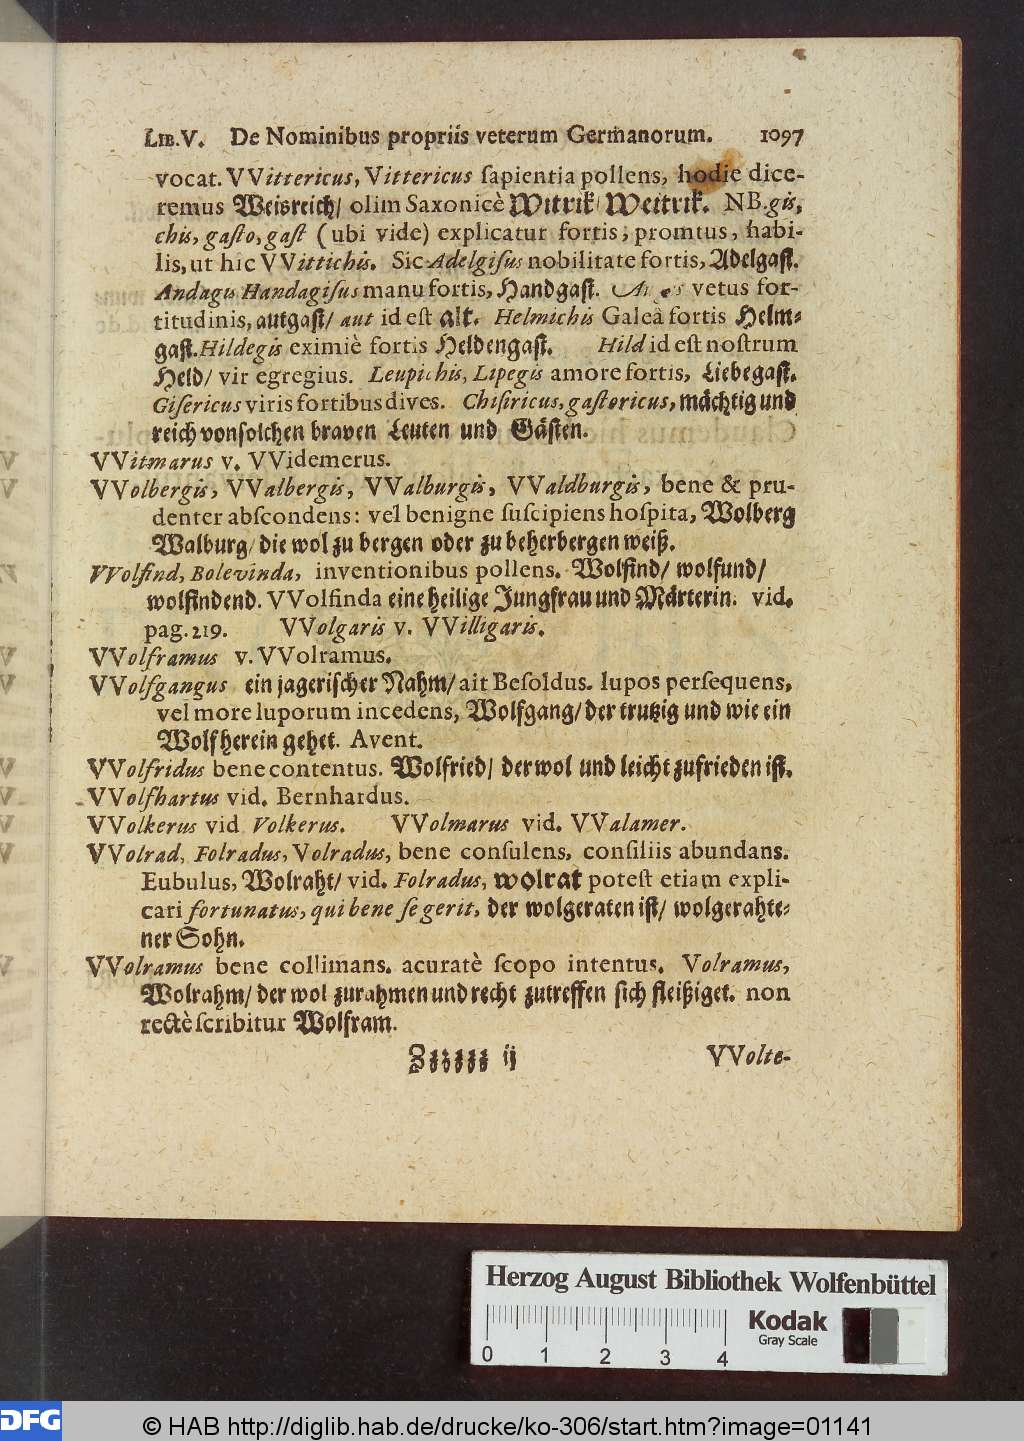 LIB. V. De Nominibus propriis veterum Germanorum. 1097
vocat. VVittericus, Vittericus ſapientia pollens, hodie dice-
remus Weisreich/ olim Saxonicè Witrik/ Weitrik. NB. gis,
chis, gaſto, gaſt (ubi vide) explicatur fortis, promtus, habi-
lis, ut hic VVittichis. Sic Adelgiſus nobilitate fortis, Adelgaſt.
Andagis Handagiſus manu fortis, Handgaſt. vetus for-
titudinis, autgaſt/ aut id eſt alt. Helmichis Galeâ fortis Helm-
gaſt. Hildegis eximiè fortis Heldengaſt. Hild id eſt noſtrum
Held/ vir egregius. Leupichis, Lipegis amore fortis, Liebegaſt.
Giſericus viris fortibus dives. Chiſiricus, gaſtoricus, mächtig und
reich von ſolchen braven Leuten und Gäſten.
VVitmarus v. VVidemerus.
VVolbergis, VValbergis, VValburgis, VValdburgis, bene & pru-
denter abſcondens: vel benigne ſuſcipiens hoſpita, Wolberg
Walburg/ die wol zu bergen oder zu beherbergen weiß.
VVolfind, Bolevinda, inventionibus pollens. Wolfind/ wolfund/
wolfindend. VVolfinda eine heilige Jungfrau und Märterin. vid.
pag. 219. VVolgaris v. VVilligaris.
VVolframus v. VVolramus.
VVolfgangus ein jagerischer Nahm/ ait Beſoldus. lupos perſequens,
vel more luporum incedens, Wolfgang/ der trutzig und wie ein
Wolf herein gehet. Avent.
VVolfridus bene contentus. Wolfried/ der wol und leicht zufrieden iſt.
VVolfhartus vid. Bernhardus.
VVolkerus vid Volkerus. VVolmarus vid. VValamer.
VVolrad, Folradus, Volradus, bene conſulens, conſiliis abundans.
Eubulus, Wolraht/ vid. Folradus, wolrat poteſt etiam expli-
cari fortunatus, qui bene ſe gerit, der wolgeraten iſt/ wolgerahte-
ner Sohn.
VVolramus bene collimans. acuratè ſcopo intentus. Volramus,
Wolrahm/ der wol zurahmen und recht zutreffen ſich fleißiget. non
rectè ſcribitur Wolfram.
Zzzzzz ij VVolte-
Herzog August Bibliothek Wolfenbüttel
Kodak
Gray Scale
0 1 2 3 4
DFG © HAB http://diglib.hab.de/drucke/ko-306/start.htm?image=01141